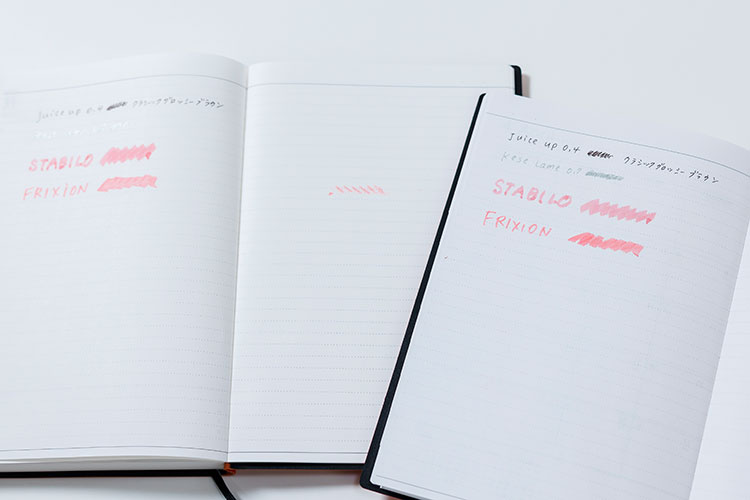 Juice up 0.4 クラシックグロッシーブラウン
STABILO
FRIXION
Juice up 0.4 クラシックグロッシーブラウン
Kese Lame 0.7
STABILO
FRIXION